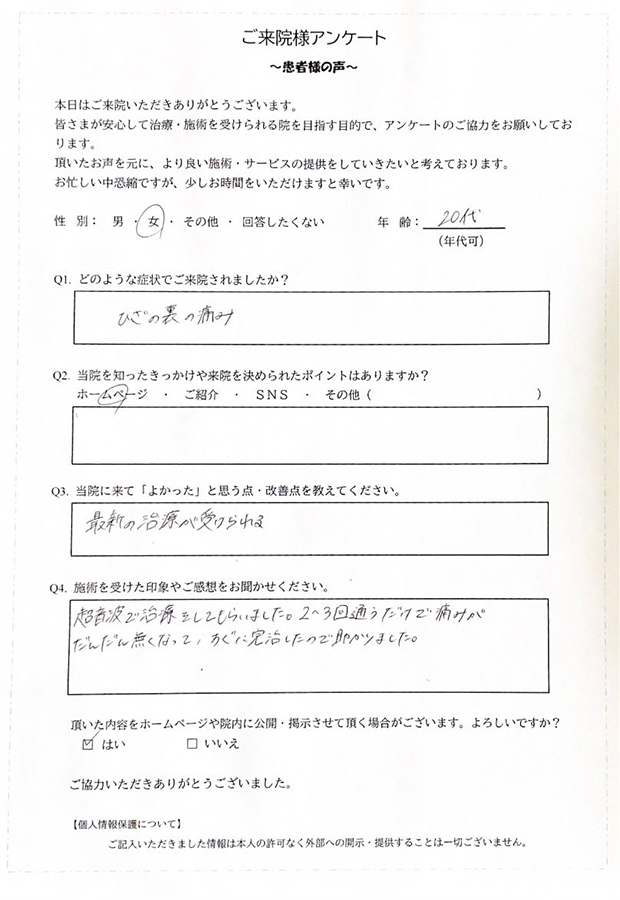 ご来院様アンケート
～患者様の声～
本日はご来院いただきありがとうございます。
皆さまが安心して治療・施術を受けられる院を目指す目的で、アンケートのご協力をお願いしてお
ります。
頂いたお声を元に、より良い施術・サービスの提供をしていきたいと考えております。
お忙しい中恐縮ですが、少しお時間をいただけますと幸いです。
性 別： 男 ・ 女 ・ その他 ・ 回答したくない 年 齢： 20代
（年代可）
Q1. どのような症状でご来院されましたか？
ひざの裏の痛み
Q2. 当院を知ったきっかけや来院を決められたポイントはありますか？
ホームページ ・ ご紹介 ・ ＳＮＳ ・ その他（ ）
Q3. 当院に来て「よかった」と思う点・改善点を教えてください。
最新の治療が受けられる
Q4. 施術を受けた印象やご感想をお聞かせください。
超音波で治療をしてもらいました。2～3回通うだけで痛みが
だんだん無くなって、すぐに完治したので助かりました。
頂いた内容をホームページや院内に公開・掲示させて頂く場合がございます。よろしいですか？
☑ はい □ いいえ
ご協力いただきありがとうございました。
【個人情報保護について】
ご記入いただきました情報は本人の許可なく外部への開示・提供することは一切ございません。